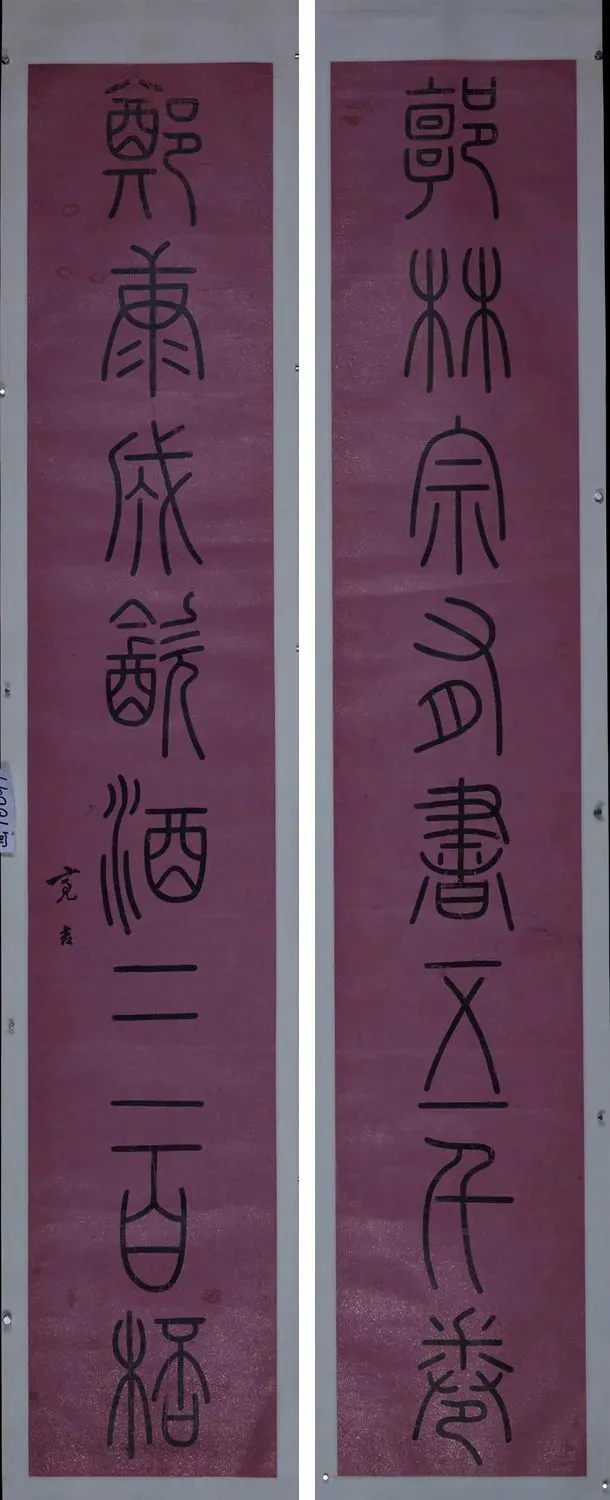 郭林宗有書五千卷
鄭康成飲酒三百桮